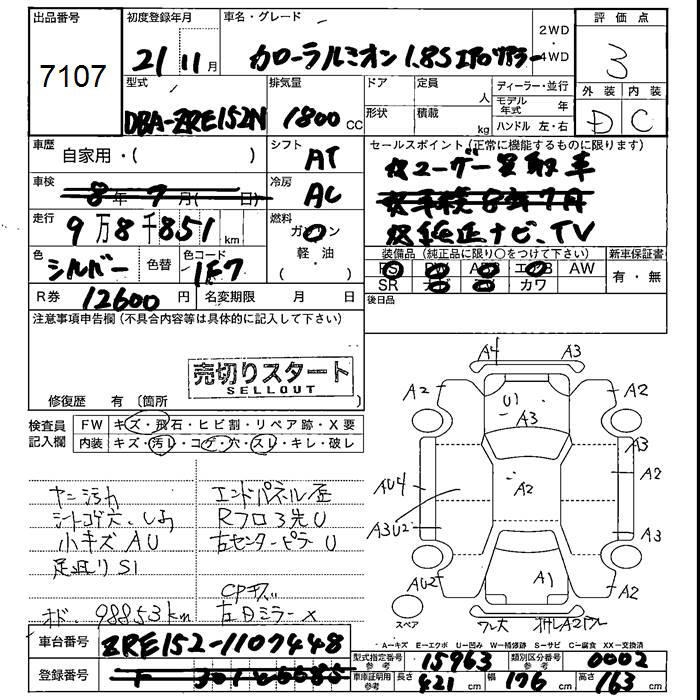 出品番号
7107
初度登録年月
21 11月
車名・グレード
カローラルミオン 1.8S エアロツアラー
2WD
4WD
評価点
3
外装 内装
D C
型式
DBA-ZRE152N
排気量
1800 CC
ドア
形状
定員
人
積載
kg
ディーラー・並行
モデル年式 年
ハンドル 左・右
車歴
自家用・( )
シフト
AT
セールスポイント(正常に機能するものに限ります)
ユーザー買取車
車検
8年7月( 日)
冷房
AC
走行
9万8千851km
純正ナビ、TV
燃料
ガソリン
軽・油
( )
色
シルバー
色替
色コード
1F7
装備品(純正品に限り○をつけて下さい)
新車保証書
PS PW エアB AW
SR ナビ カワ
有・無
R券 12600円
名変期限 月 日
後日品
注意事項申告欄(不具合内容等は具体的に記入して下さい)
売切りスタート
SELLOUT
修復歴 有(箇所
検査員記入欄
FW キズ・飛石・ヒビ割・リペア跡・X要
内装 キズ・汚レ・コゲ・穴・スレ・キレ・破レ
ヤニ汚れ
シートコゲ穴、しみ
小キズAU
足廻りS1
オド、98853km
エンドパネル歪
Rフロア先U
右センターピラーU
CPキズ
右Dミラー×
A4 A3
A2 U1 A3 A2
A3
AU4 A2 A2
A3U2 A3
AU2 A1 A2
スペア
ワレ大 オサレA2ワレ
A-キズ E-エクボ U-凹み W-補修跡 S-サビ C-腐食 XX-交換済
車台番号
ZRE152-1107448
登録番号
型式指定番号参考 15963
類別区分番号参考 0002
車庫証明用参考 長さ 421cm 幅 176cm 高さ 163cm